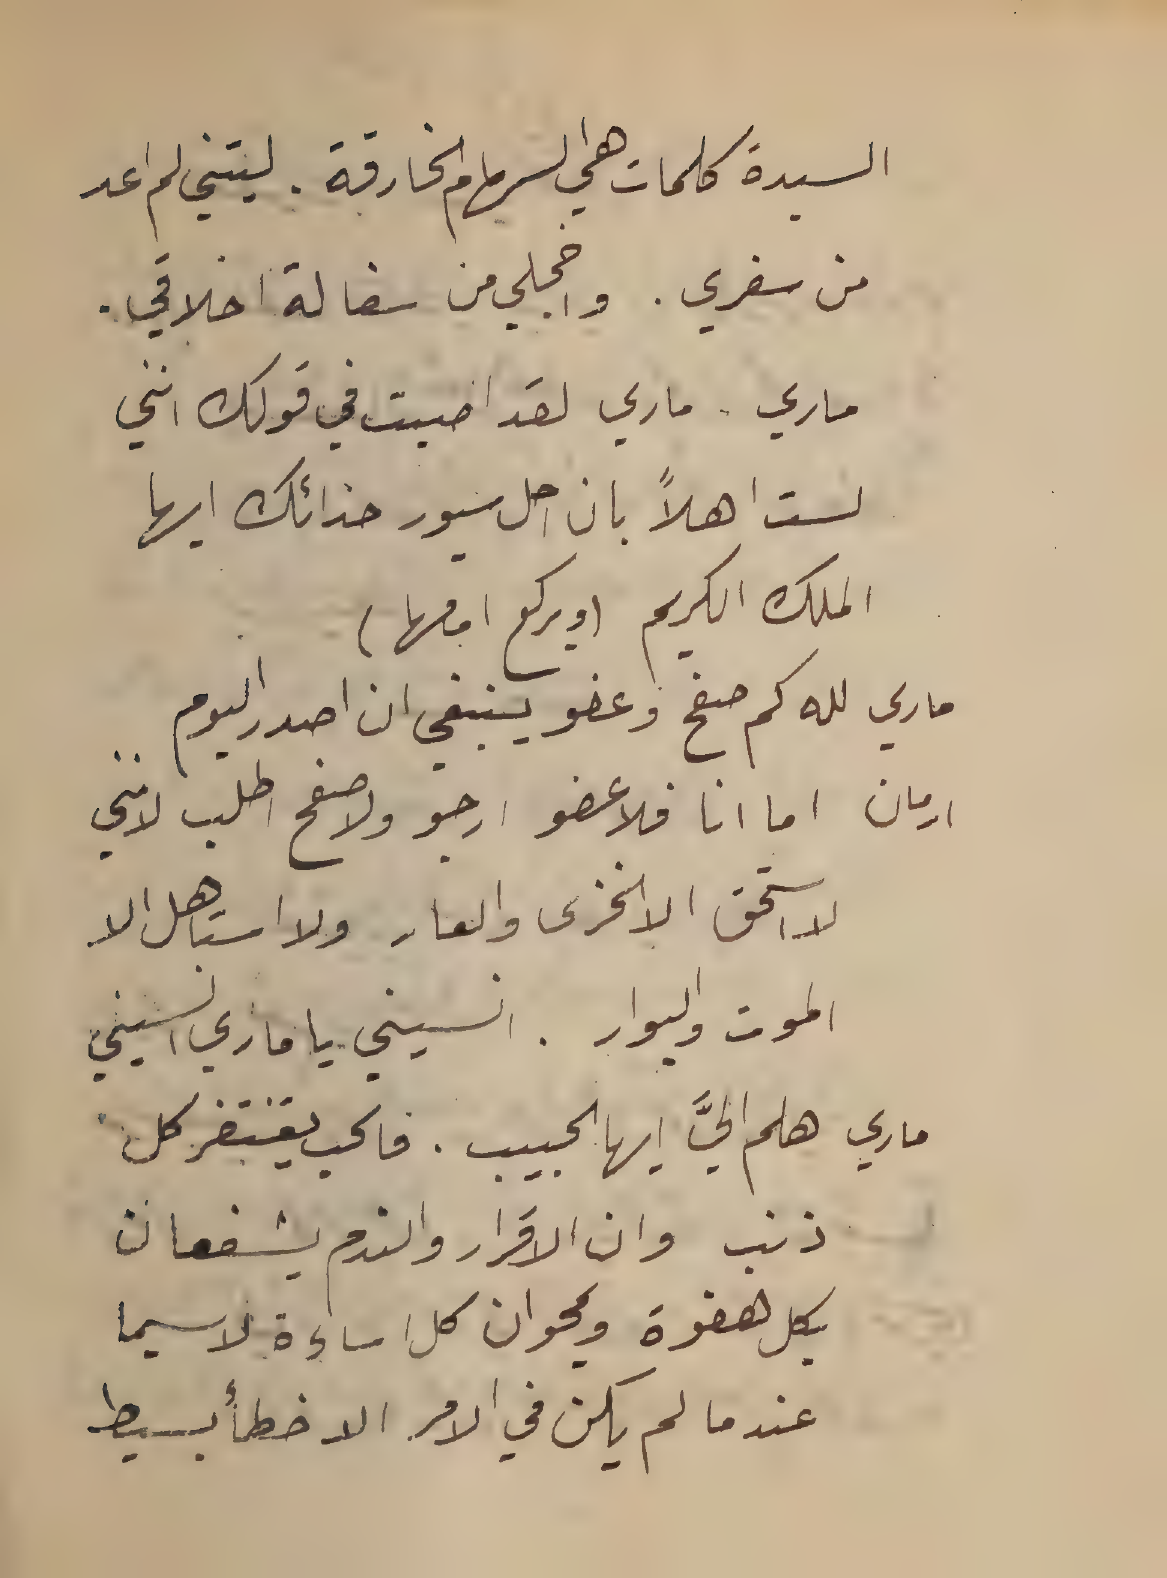 السيدة كلمات هي السهام الخارقة . ليتني لم اعد
من سفري . واخجلي من سفالة اخلاقي .
ماري . ماري لقد اصبت في قولك انني
لست اهلاً بان احل سيور حذائك ايها
الملك الكريم (ويركع امامها)
ماري لله كم صفح وعفو ينبغي ان اصدر اليوم
ارمان اما انا فلا عفو ارجو ولا صفح اطلب لانني
لا استحق الا الخزى والعار ولا استاهل الا
الموت والبوار . انسيني يا ماري انسيني
ماري هلم اليَّ ايها الحبيب . فالحب يغتفر كل
ذنب وان الاقرار والندم يشفعان
بكل هفوة ويمحوان كل اساءة لاسيما
عندما لم يكن في الامر الا خطأ بسيط